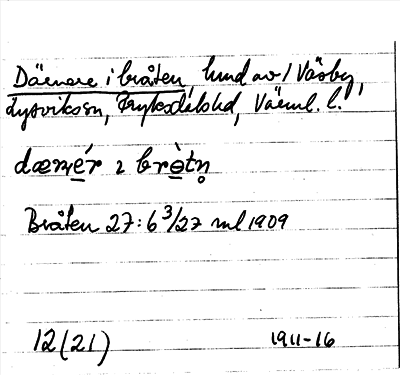 Däerare i bråten, hund av / Väsby,
Lysvikssn, Fryksdalshd, Värml. l.
dæræ̀r ı brò̱tn̥
Bråten 27:6 3/27 ml 1909
12(21) 1911-16